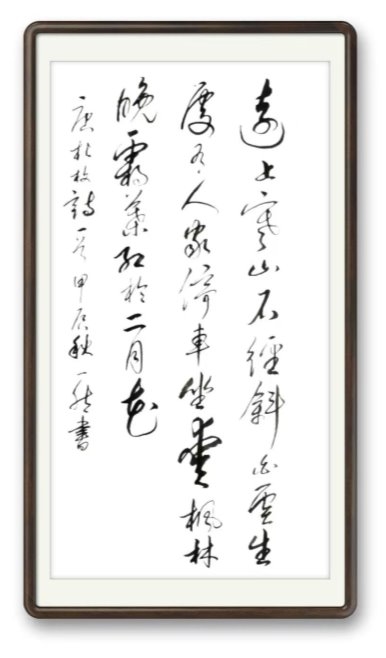 遠上寒山石徑斜白雲生
處有人家停車坐愛楓林
晚霜葉紅於二月花
唐杜牧詩一首甲辰秋一書